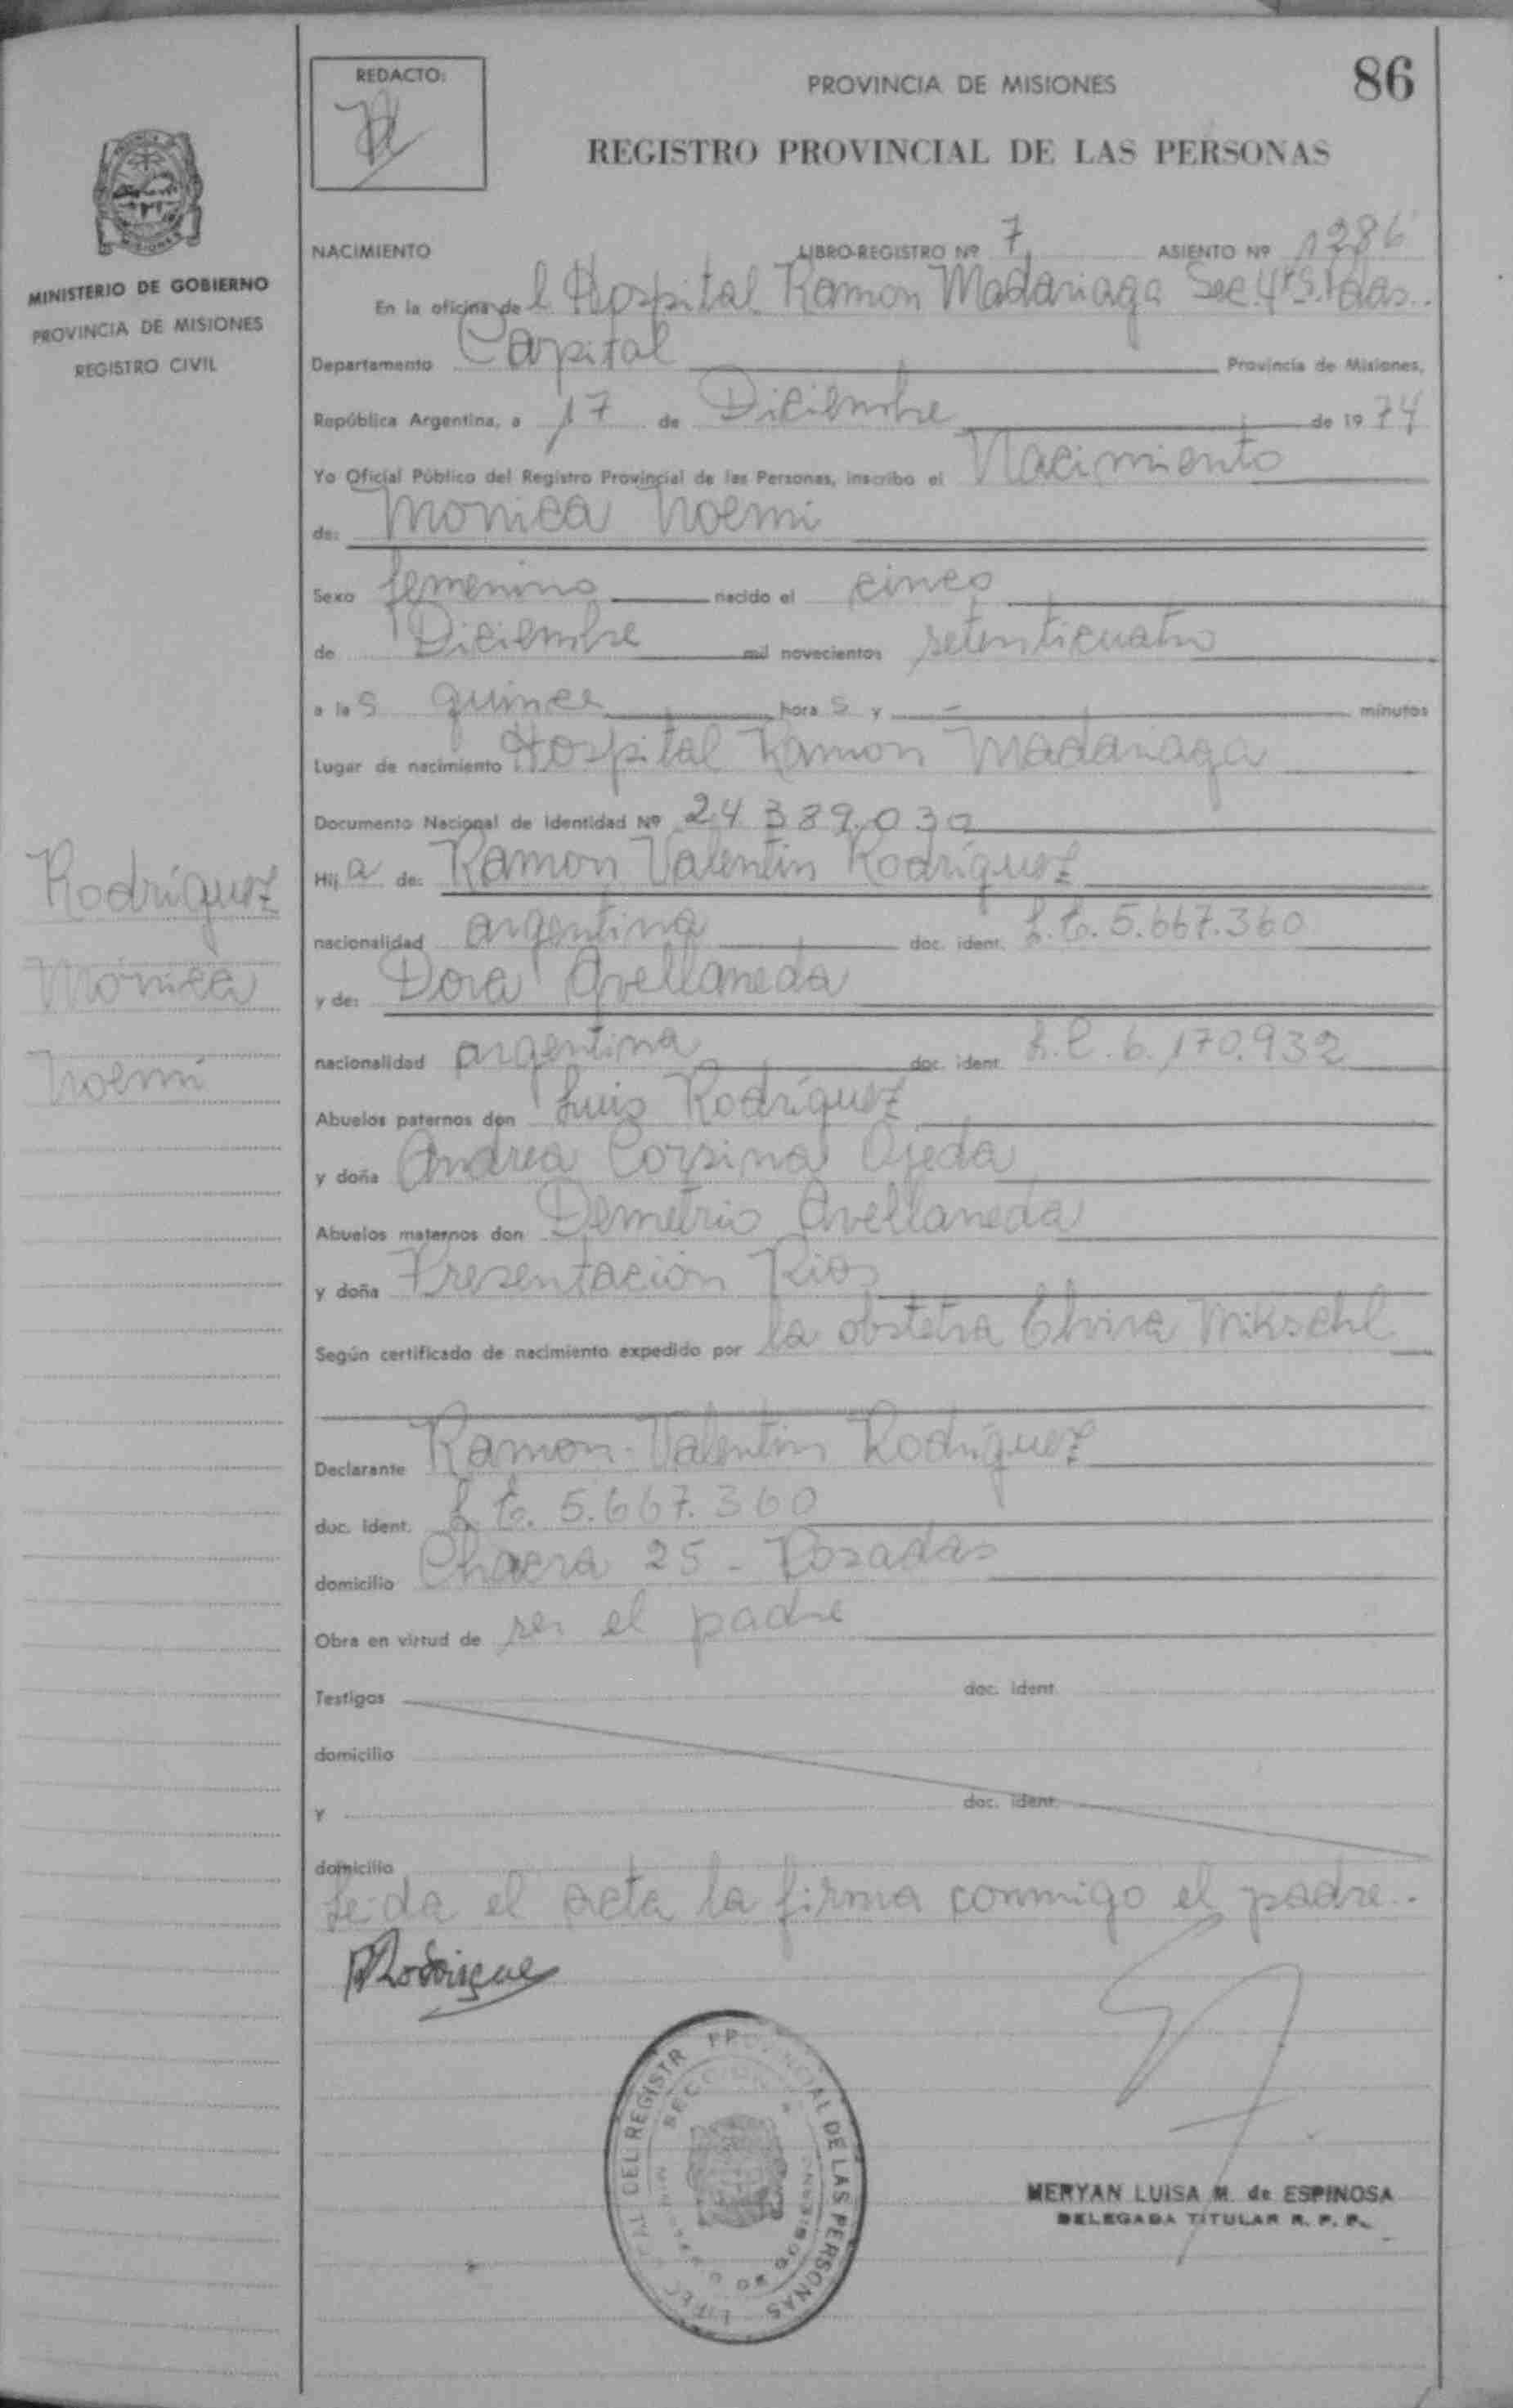 86
REDACTO:
PROVINCIA DE MISIONES
REGISTRO PROVINCIAL DE LAS PERSONAS
MINISTERIO DE GOBIERNO
PROVINCIA DE MISIONES
REGISTRO CIVIL
NACIMIENTO LIBRO-REGISTRO Nº 7 ASIENTO Nº 1286
En la oficina de l Hospital Ramon Madariaga Sec. 4ta Pdas.
Departamento Capital Provincia de Misiones,
República Argentina, a 17 de Diciembre de 1974
Yo Oficial Público del Registro Provincial de las Personas, inscribo el Nacimiento
de: Monica Noemi
Sexo femenino nacido el cinco
de Diciembre mil novecientos setenticuatro
a las quince horas y - minutos
Lugar de nacimiento Hospital Ramon Madariaga
Documento Nacional de Identidad Nº 24.389.030
Hija de: Ramon Valentin Rodríguez
nacionalidad argentina doc. ident. 5.667.360
y de: Dora Avellaneda
nacionalidad argentina doc. ident. L.C. 6.170.932
Abuelos paternos don Luis Rodríguez
y doña Andrea Corsina Ojeda
Abuelos maternos don Demetrio Avellaneda
y doña Presentación Rios
Según certificado de nacimiento expedido por la obstetra Elvira
Declarante Ramon Valentin Rodríguez
doc. ident. 5.667.360
domicilio Chacra 25 - Posadas
Obra en virtud de ser el padre
Testigos doc. ident.
domicilio
y doc. ident.
domicilio
Leída el acta la firma conmigo el padre.-
Rodríguez
Mónica
Noemí
MERYAN LUISA M. de ESPINOSA
DELEGADA TITULAR R. P. P.
DEL REGISTR PROVINCIAL DE LAS PERSONAS